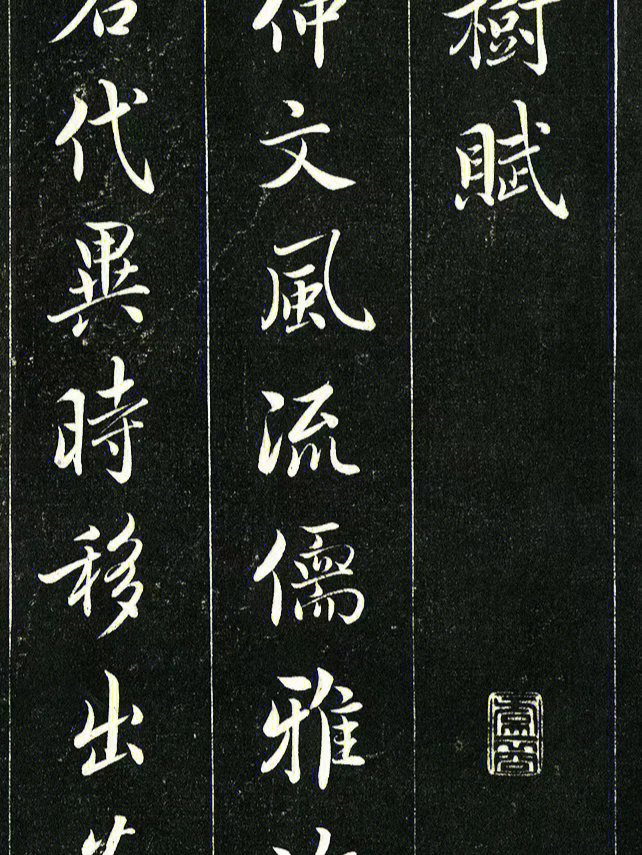 樹賦
仲文風流儒雅
名代異時移出